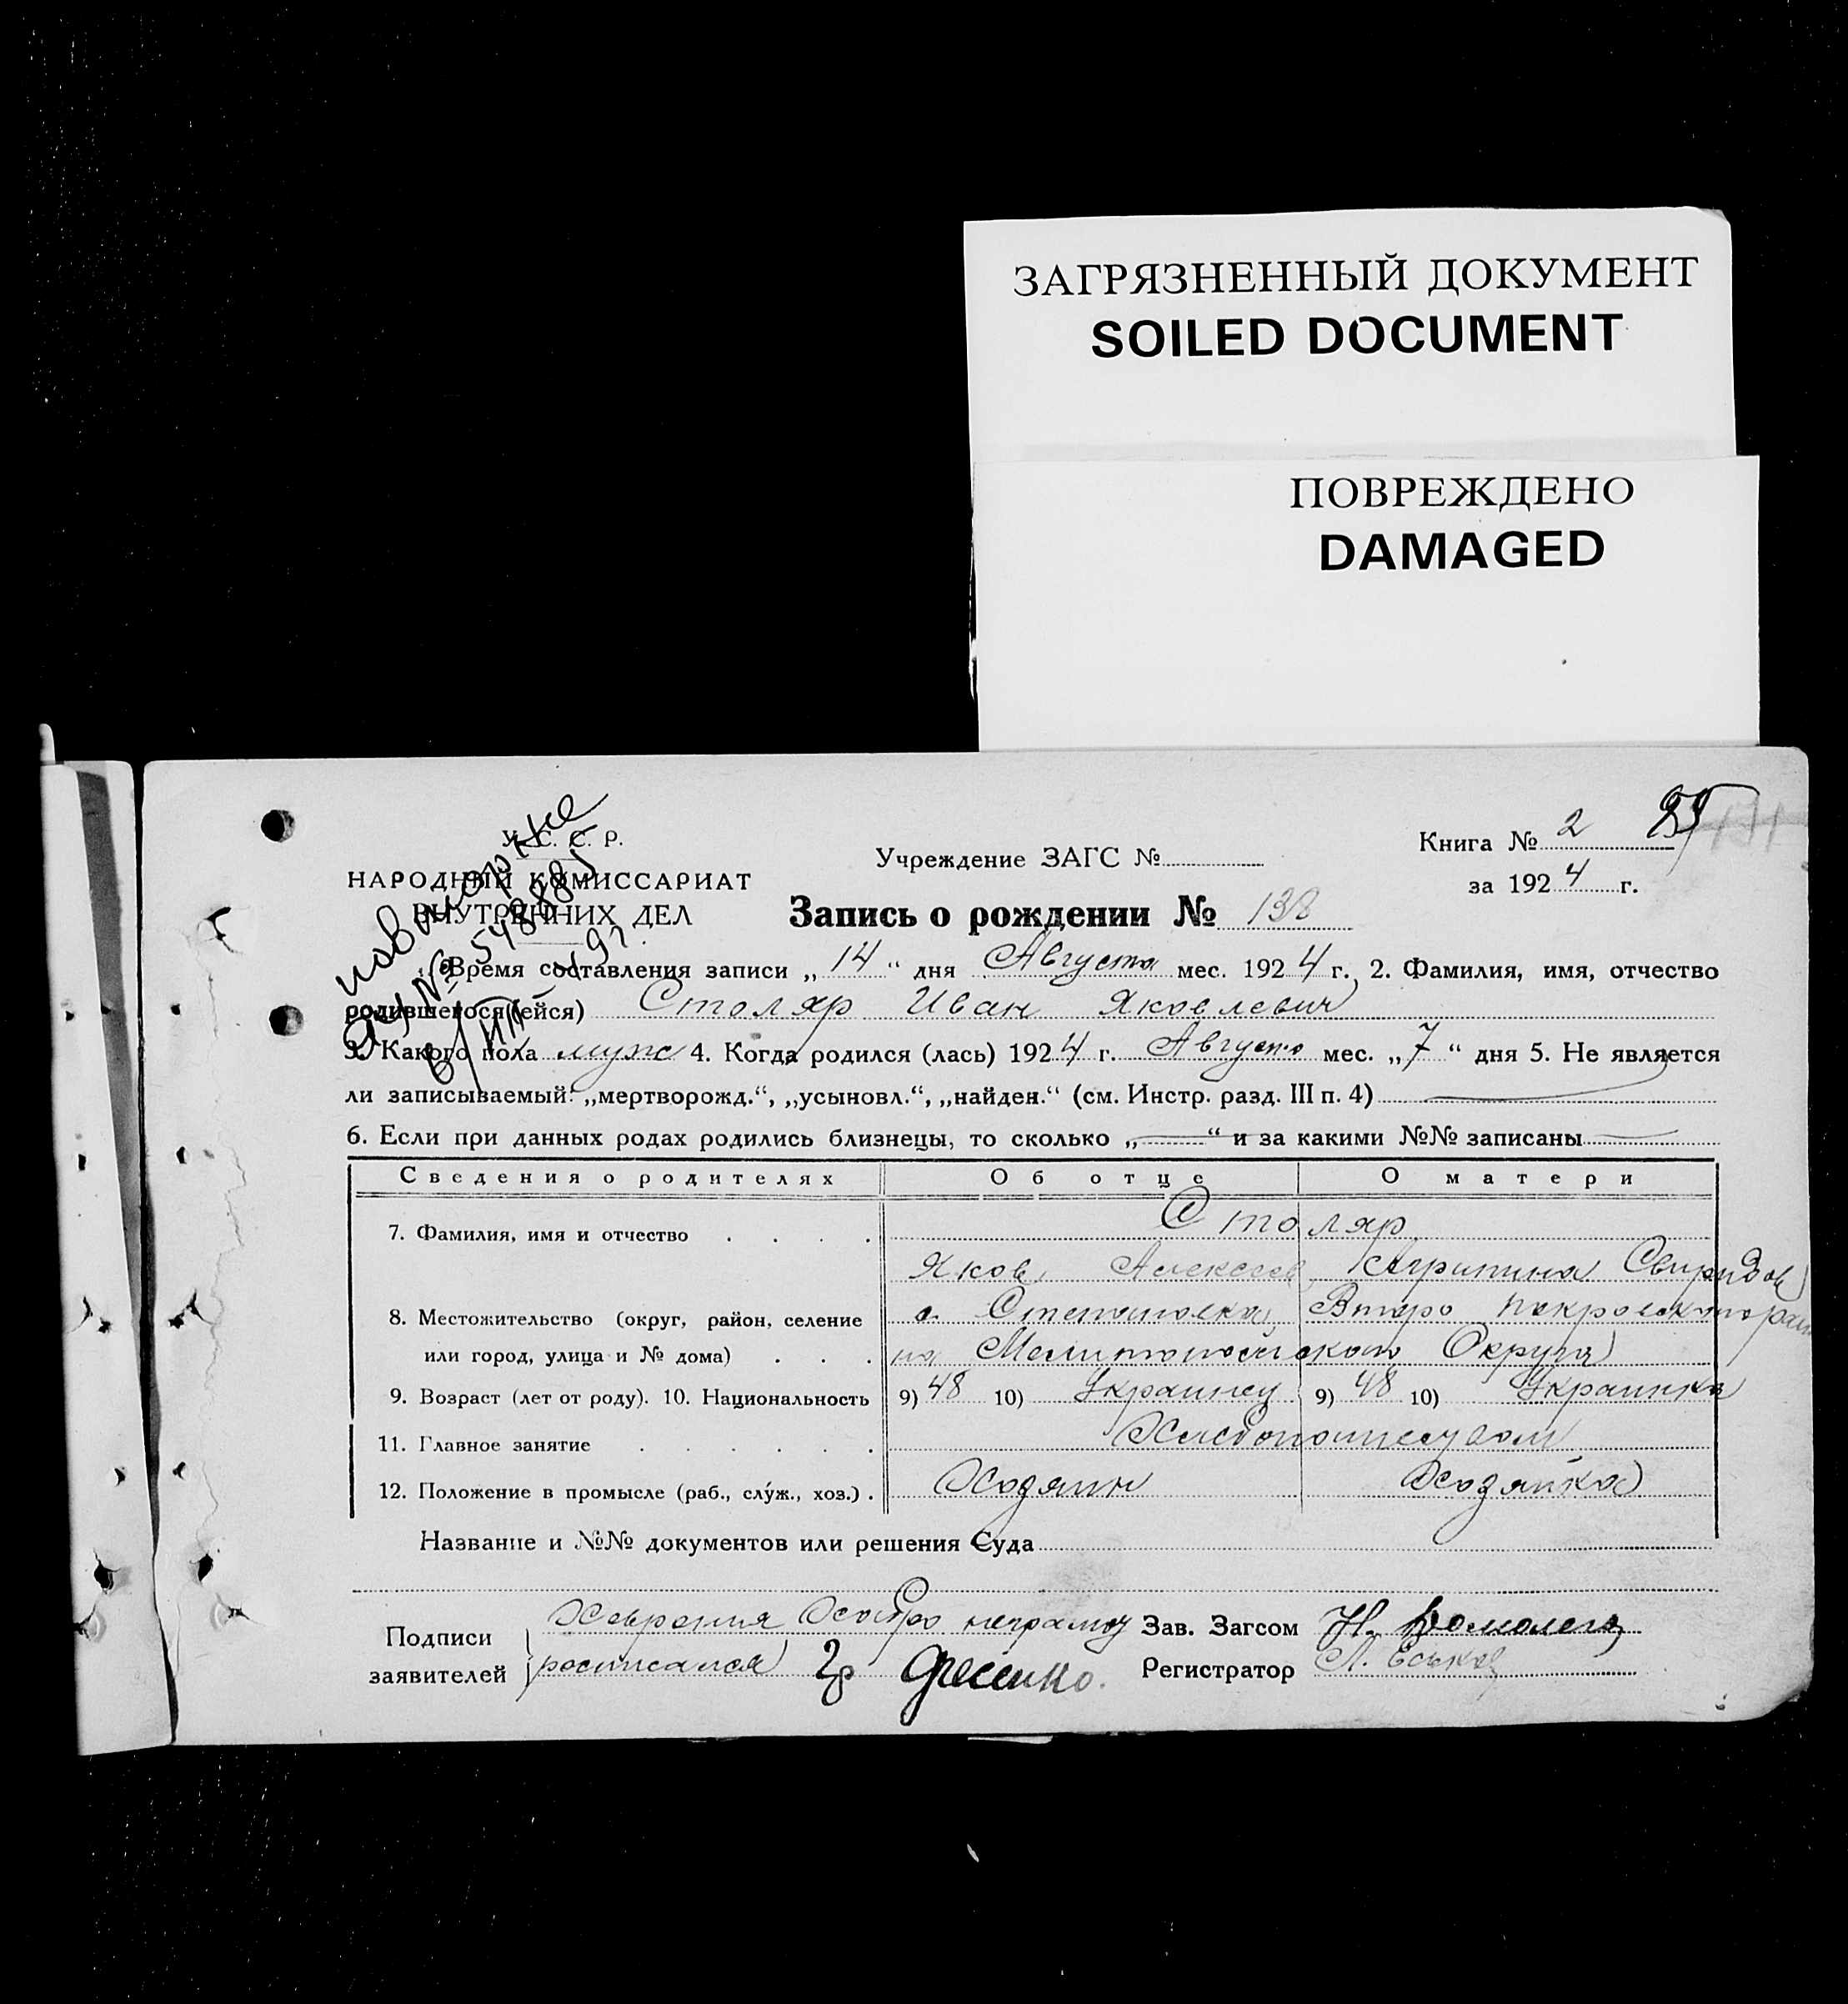 ЗАГРЯЗНЕННЫЙ ДОКУМЕНТ
SOILED DOCUMENT
ПОВРЕЖДЕНО
DAMAGED
У. С. С. Р.
НАРОДНЫЙ КОМИССАРИАТ
ВНУТРЕННИХ ДЕЛ
Учреждение ЗАГС №
Книга № 2
за 1924 г.
Запись о рождении № 138
Время составления записи „14“ дня Августа мес. 1924 г. 2. Фамилия, имя, отчество
родившегося (ейся) Столяр Иван Яковлевич
3. Какого пола муж 4. Когда родился (лась) 1924 г. Августа мес. „7“ дня 5. Не является
ли записываемый: „мертворожд.“, „усыновл.“, „найден.“ (см. Инстр. разд. III п. 4)
6. Если при данных родах родились близнецы, то сколько „—“ и за какими №№ записаны —
Сведения о родителях Об отце О матери
7. Фамилия, имя и отчество . . . . Столяр
Яков Алексеев Агрипина Свиридов
8. Местожительство (округ, район, селение с. Степановка, Второ Покровского рай
или город, улица и № дома) . . . на Мелитопольского Округа
9. Возраст (лет от роду). 10. Национальность 9) 48 10) Украинец 9) 48 10) Украинка
11. Главное занятие . . . . . . Хлебопашеством
12. Положение в промысле (раб., служ., хоз.) . Хозяин Хозяйка
Название и №№ документов или решения Суда
Подписи заявителей
Хеврония неграмот
росписался Гр Фесенко.
Зав. Загсом Н.
Регистратор Л.